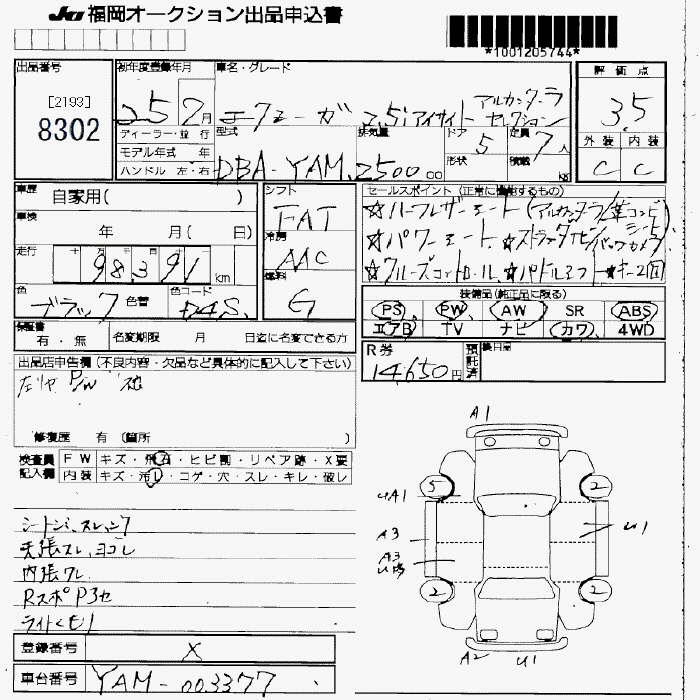 JU 福岡オークション出品申込書
*1001205744*
出品番号
[2193]
8302
初年度登録年月
25 2 月
ディーラー・並行
モデル年式 年
ハンドル 左・右
車名・グレード
エクシーガ 2.5i アイサイト アルカンターラ セレクション
型式
DBA-YAM
排気量
2500 00
ドア 5
形状
定員 7 人
積載 kg
評価点
3.5
外装 内装
C C
車歴
自家用( )
車検
年 月( 日)
走行
十 万 千 百 十
98391 km
色
ブラック
色替
色コード
D4S
シフト
FAT
冷房
AAC
燃料
G
セールスポイント(正常に機能するもの)
☆ハーフレザーシート(アルカンターラ/革コンビシート)
☆パワーシート ☆ストラーダナビ バックカメラ
☆クルーズコントロール ☆パドルシフト ☆キー2個
装備品(純正品に限る)
PS PW AW SR ABS
エアB TV ナビ カワ 4WD
保証書
有・無
名変期限 月 日迄に名変できる方
R券
14,650円
預託済
出品店申告欄(不良内容・欠品など具体的に記入して下さい)
修復歴 有 (箇所 )
検査員記入欄
FW キズ・飛石・ヒビ割・リペア跡・X要
内装 キズ・汚レ・コゲ・穴・スレ・キレ・破レ
シートシミ、スレ、シワ
天張スレ、ヨゴレ
内張スレ
RスポP3セ
ライトくもり
A1
5
2
UA1
U1
A3
A3
2
2
A2
U1
登録番号
X
車台番号
YAM-003377